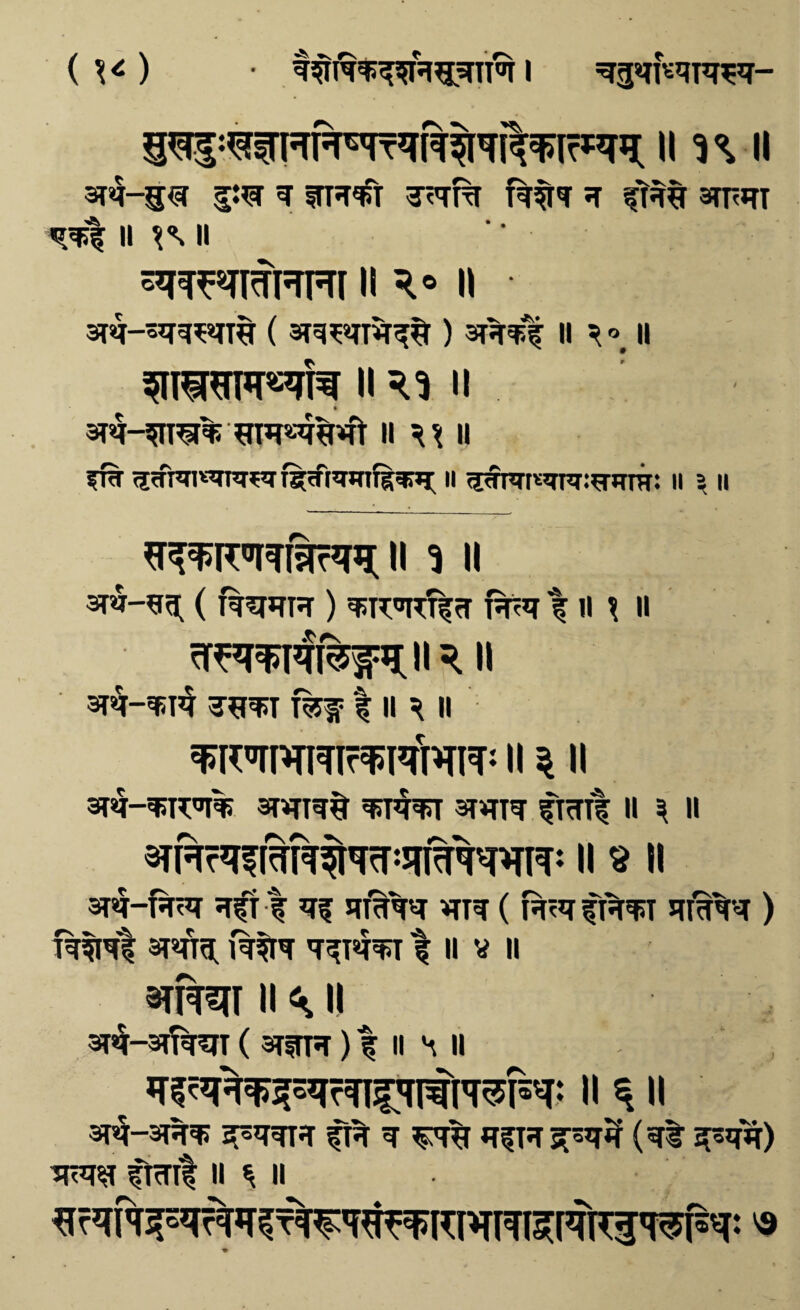 ( १८ ) । चतुर्थाध्यायस्य-
सुखदुःखज्ञाननिष्पत्त्यविशेषादैकात्म्यम् ॥ १९ ॥
अर्थ-सुख दुःख व ज्ञानकी उत्पत्ति विशेष न होनेसे आत्मा
एकहै ॥ १९ ॥
व्यवस्थातोनाना ॥ २० ॥
अर्थ-व्यवस्थासे ( अवस्थाभेदसे ) अनेकहै ॥ २० ॥
शास्त्रसामर्थ्याच्च ॥ २१ ॥
अर्थ-शास्त्रके सामर्थ्यसेभी ॥ २१ ॥
इति तृतीयाध्यायस्य द्वितीयमाह्निकम् ॥ तृतीयाध्यायःसमाप्तः ॥ ३ ॥
सदकारणवन्नित्यम् ॥ १ ॥
अर्थ-सत् ( विद्यमान ) कारणरहित नित्य है ॥ १ ॥
तस्यकार्यंलिङ्गम् ॥ २ ॥
अर्थ-कार्य उसका लिङ्ग है ॥ २ ॥
कारणाभावात्कार्याभावः ॥ ३ ॥
अर्थ-कारणके अभावसे कार्यका अभाव होताहै ॥ ३ ॥
अनित्यइतिविशेषतःप्रतिषेधभावः ॥ ४ ॥
अर्थ-नित्य नहीं है यह प्रतिषेध भाव ( नित्य होनेका प्रतिषेध )
विशेषहै अर्थात् विशेष पदार्थका है ॥ ४ ॥
अविद्या ॥ ५ ॥
अर्थ-अविद्या ( अज्ञान ) है ॥ ५ ॥
महत्यनेकद्रव्यत्वाद्रूपाच्चोपलब्धिः ॥ ६ ॥
अर्थ-अनेक द्रव्यवान होने व रूपसे महान द्रव्यमें (बडे द्रव्यमें)
प्रत्यक्ष होताहै ॥ ६ ॥
सत्यपिद्रव्यत्वेमहत्वेरूपसंस्काराभावाद्वायोरनुपलब्धिः ७